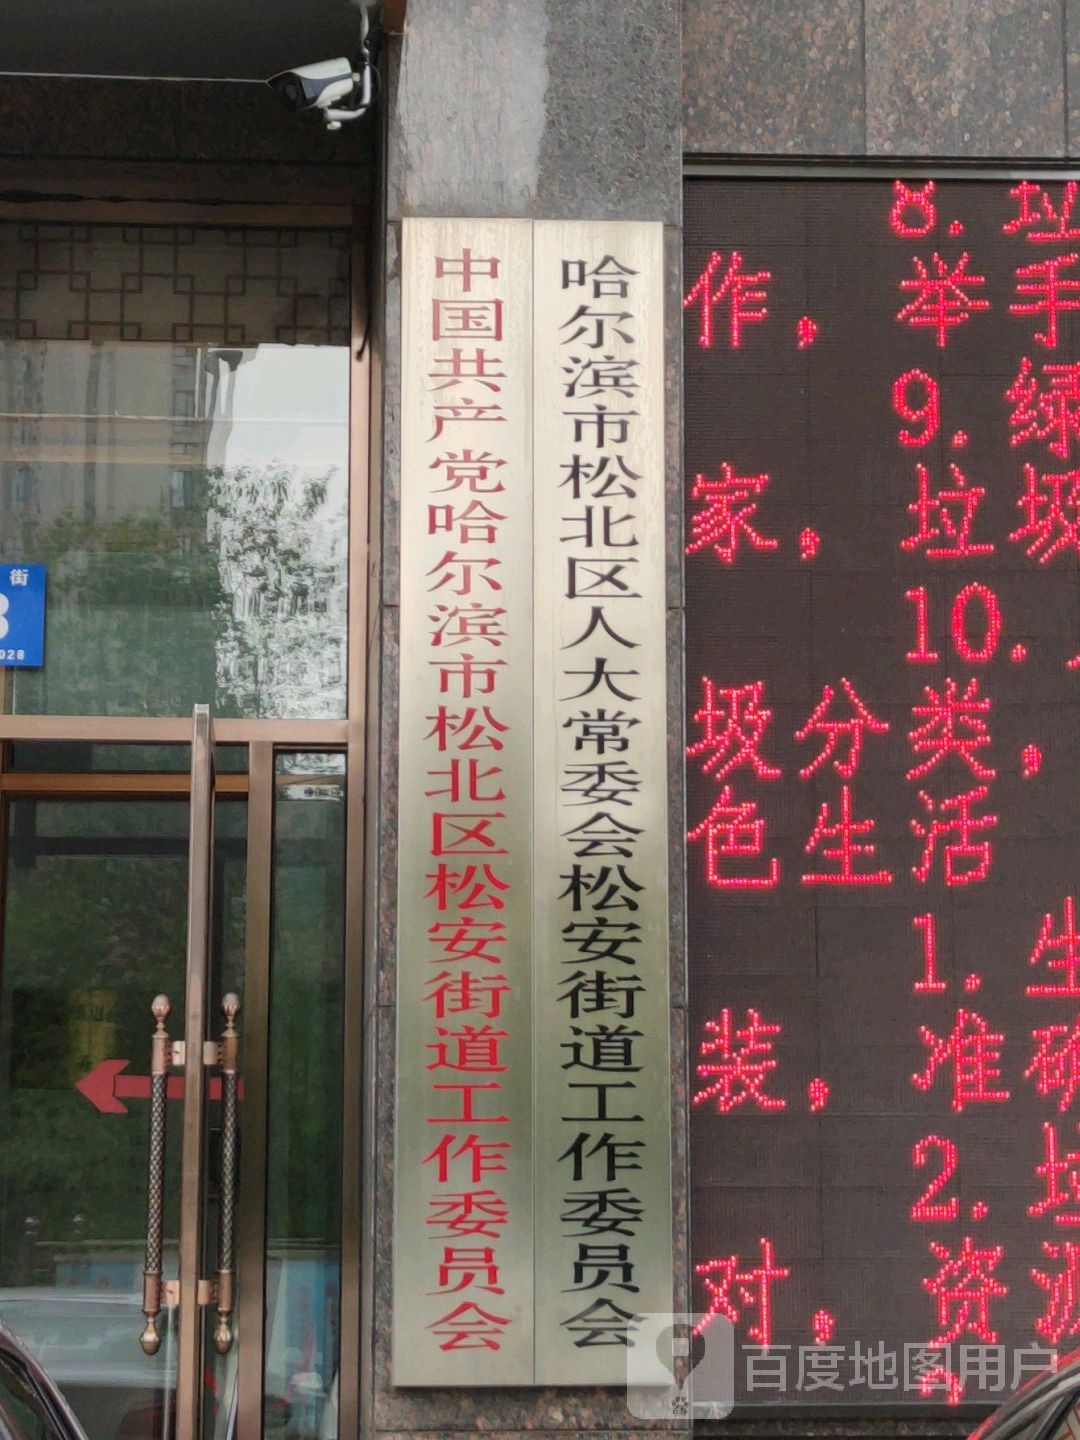 中国共产党哈尔滨市松北区松安街道工作委员会
哈尔滨市松北区人大常委会松安街道工作委员会
8.垃
作，举手
9.绿
家，垃圾
10.
圾分类，
色生活
1.生
装，准确
2.垃
对，资源
街
3
028
百度地图用户